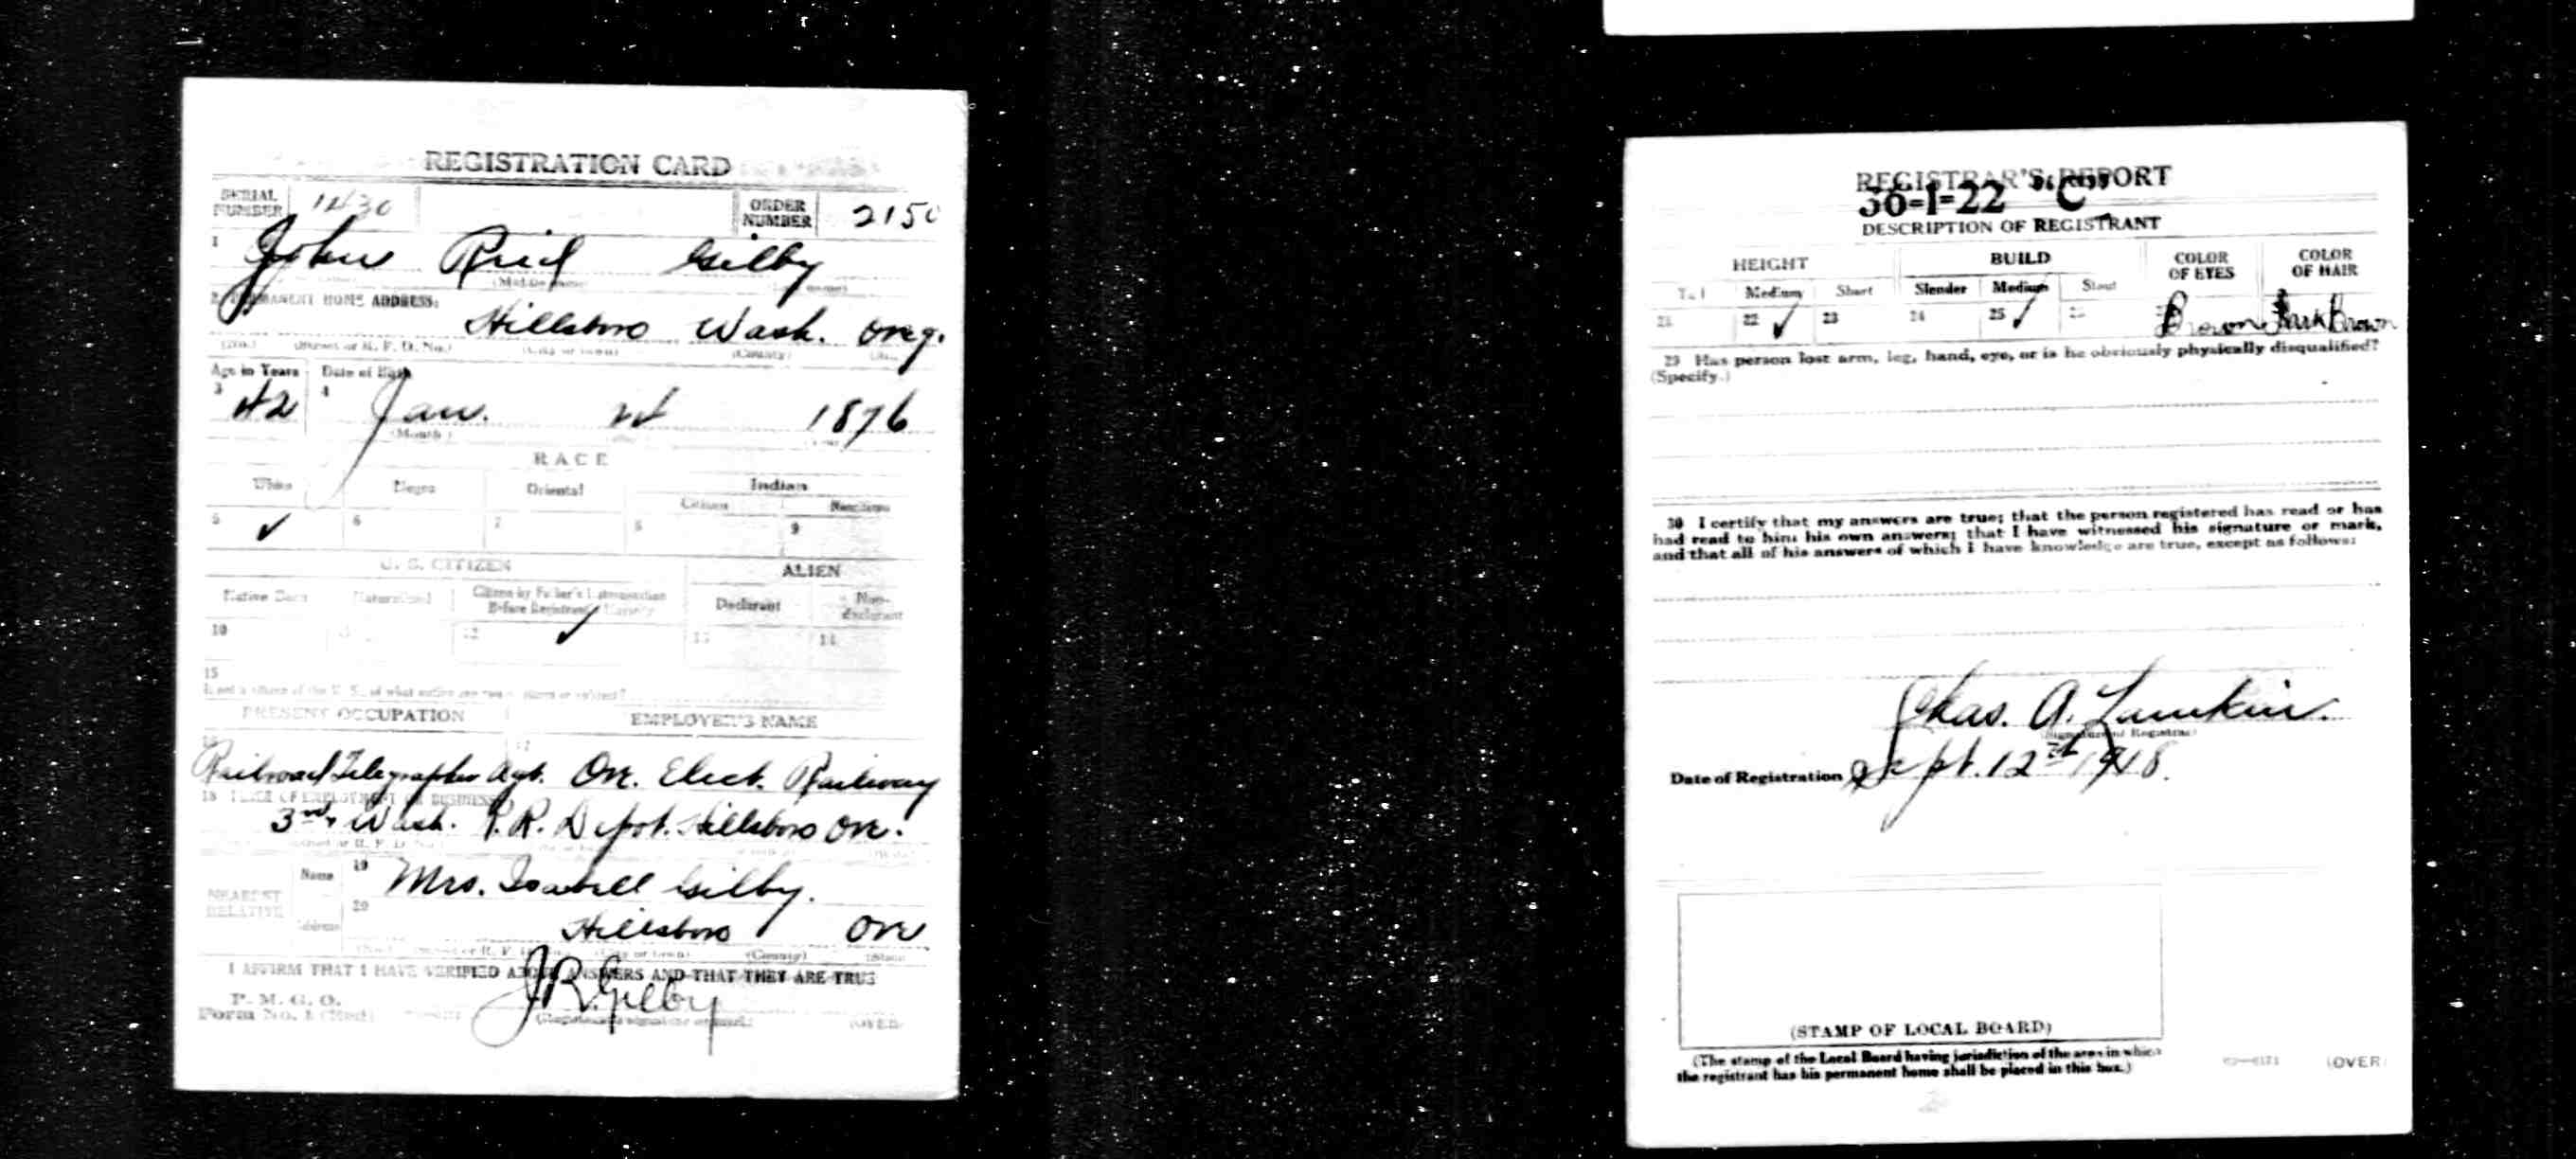 REGISTRATION CARD
SERIAL NUMBER 1430 ORDER NUMBER 2150
1 John Reid Gilby
(Middle name) (Last name)
2 PERMANENT HOME ADDRESS:
Hillsboro Wash. Oreg.
(No.) (Street or R. F. D. No.) (City or town) (County)
Age in Years Date of Birth
3 42 4 Jan. 1876
(Month)
RACE
White Negro Oriental Indian
Citizen Noncitizen
5 ✓ 6 7 8 9
U. S. CITIZEN ALIEN
Native Born Naturalized Citizen by Father's Naturalization Before Registrant's Majority Declarant Non-declarant
10 12 ✓ 13 14
15
If not a citizen of the U. S., of what nation are you a citizen or subject?
PRESENT OCCUPATION EMPLOYER'S NAME
16 17
Railroad Telegrapher Agt. Ore. Elect. Railway
18 PLACE OF EMPLOYMENT OR BUSINESS
3rd, Wash. R.R. Depot. Hillsboro Ore.
NEAREST RELATIVE Name 19 Mrs. Isabell Gilby.
Address 20 Hillsboro Ore
(City or town) (County) (State)
I AFFIRM THAT I HAVE VERIFIED ABOVE ANSWERS AND THAT THEY ARE TRUE
P. M. G. O.
Form No. 1 (Red)
J.R. Gilby
(Registrant's signature or mark) (OVER)
REGISTRAR'S REPORT
36-1-22 "C"
DESCRIPTION OF REGISTRANT
HEIGHT BUILD COLOR OF EYES COLOR OF HAIR
Tall Medium Short Slender Medium Stout
21 22 ✓ 23 24 25 ✓ 26 Brown Dark Brown
29 Has person lost arm, leg, hand, eye, or is he obviously physically disqualified?
(Specify.)
30 I certify that my answers are true; that the person registered has read or has
had read to him his own answers; that I have witnessed his signature or mark,
and that all of his answers of which I have knowledge are true, except as follows:
Chas. A. Lamkin.
(Signature of Registrar)
Date of Registration Sept. 12th 1918.
(STAMP OF LOCAL BOARD)
(The stamp of the Local Board having jurisdiction of the area in which
the registrant has his permanent home shall be placed in this box.)
(OVER)